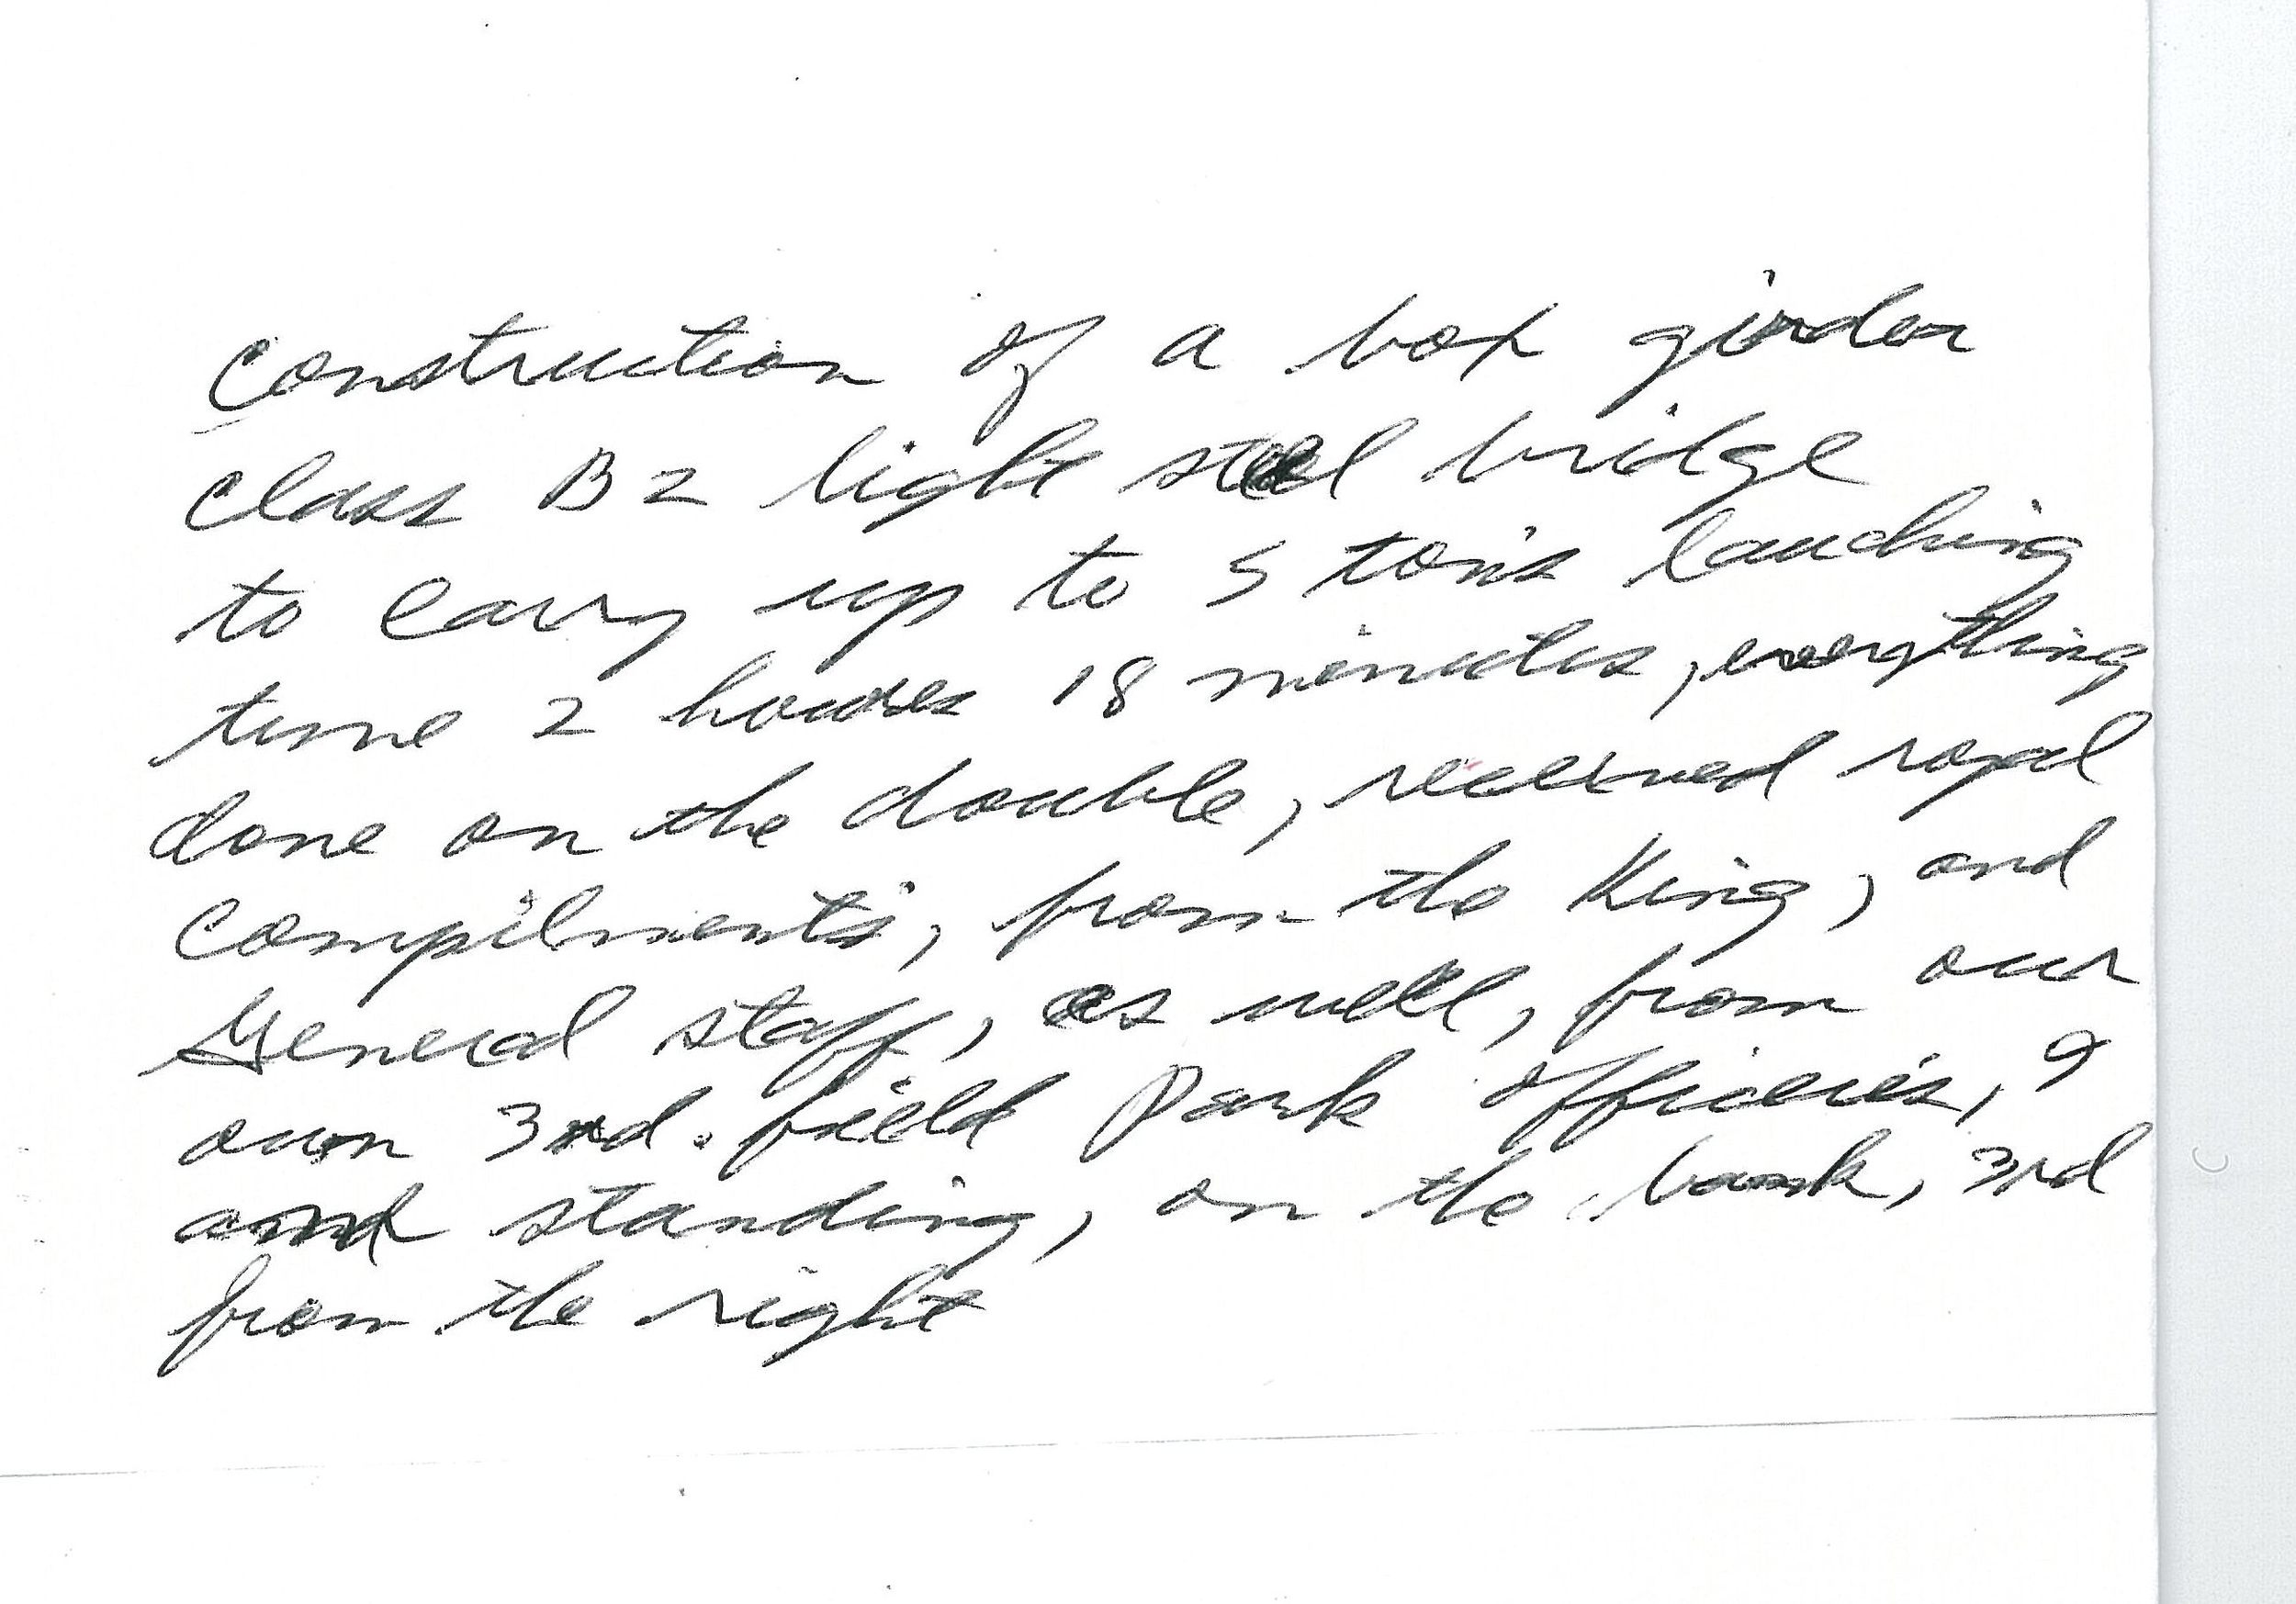 Construction of a box girder
Class B2 light steel bridge
to carry up to 5 ton's lauching
time 2 houres 18 minutes, everything
done on the double, received royal
Compilment's, from the King, and
General staff, as well, from our
own 3rd. field Park officer's, 9
and standing, on the bank, 3rd
from the right